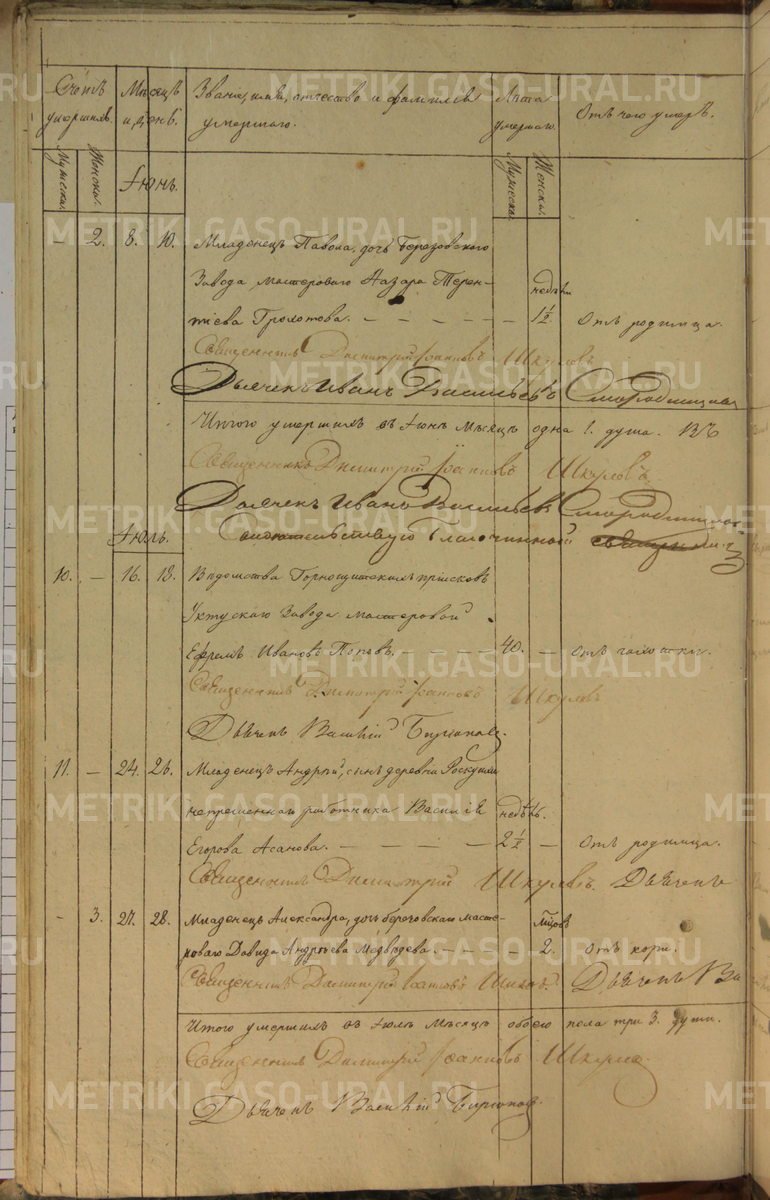 Счетъ умершихъ. Мѣсяцъ и день. Званіе, имя, отчество и фамилія умершаго. Лѣта умершаго. Отъ чего умеръ.
Мужеска. Женска. Іюнь. Мужеска. Женска.
- 2. 8. 10. Младенецъ Павола, дочь Березовскаго
Завода мастероваго Назара Терен- недѣли
тіева Громотова. — — — — 1½ Отъ родимца.
Священникъ Димитрій Іоанновъ Шкулевъ
Дьячекъ Иванъ Васильевъ Смородинцовъ
Итого умершихъ въ Іюнѣ мѣсяцѣ одна 1. душа.
Священникъ Димитрій Іоанновъ Шкулевъ
Дьячекъ Иванъ Васильевъ Смородинцовъ
Іюль. Благочинной
10. — 16. 18. Вѣдомства Горнощитскихъ пріисковъ
Уктускаго Завода мастеровой
Ефремъ Ивановъ Поповъ. — — — — 40. — Отъ чахотки.
Священникъ Димитрій Іоанновъ Шкулевъ
Дьячекъ Василій
11. — 24. 26. Младенецъ Андрей, сынъ деревни
непремѣннаго работника Василія недѣль.
Егорова Асанова. — — — — 2½ — Отъ родимца.
Священникъ Димитрій Шкулевъ. Дьячекъ
- 3. 27. 28. Младенецъ Александра, дочь березовскаго масте-
роваго Давида Андреева Медведева. — — — — 2. Отъ кори.
Священникъ Димитрій Іоанновъ Шкулевъ. Дьячекъ Ва
Итого умершихъ въ Іюлѣ мѣсяцѣ обоего пола три 3. души.
Священникъ Димитрій Іоанновъ Шкулевъ.
Дьячекъ Василій
METRIKI.GASO-URAL.RU